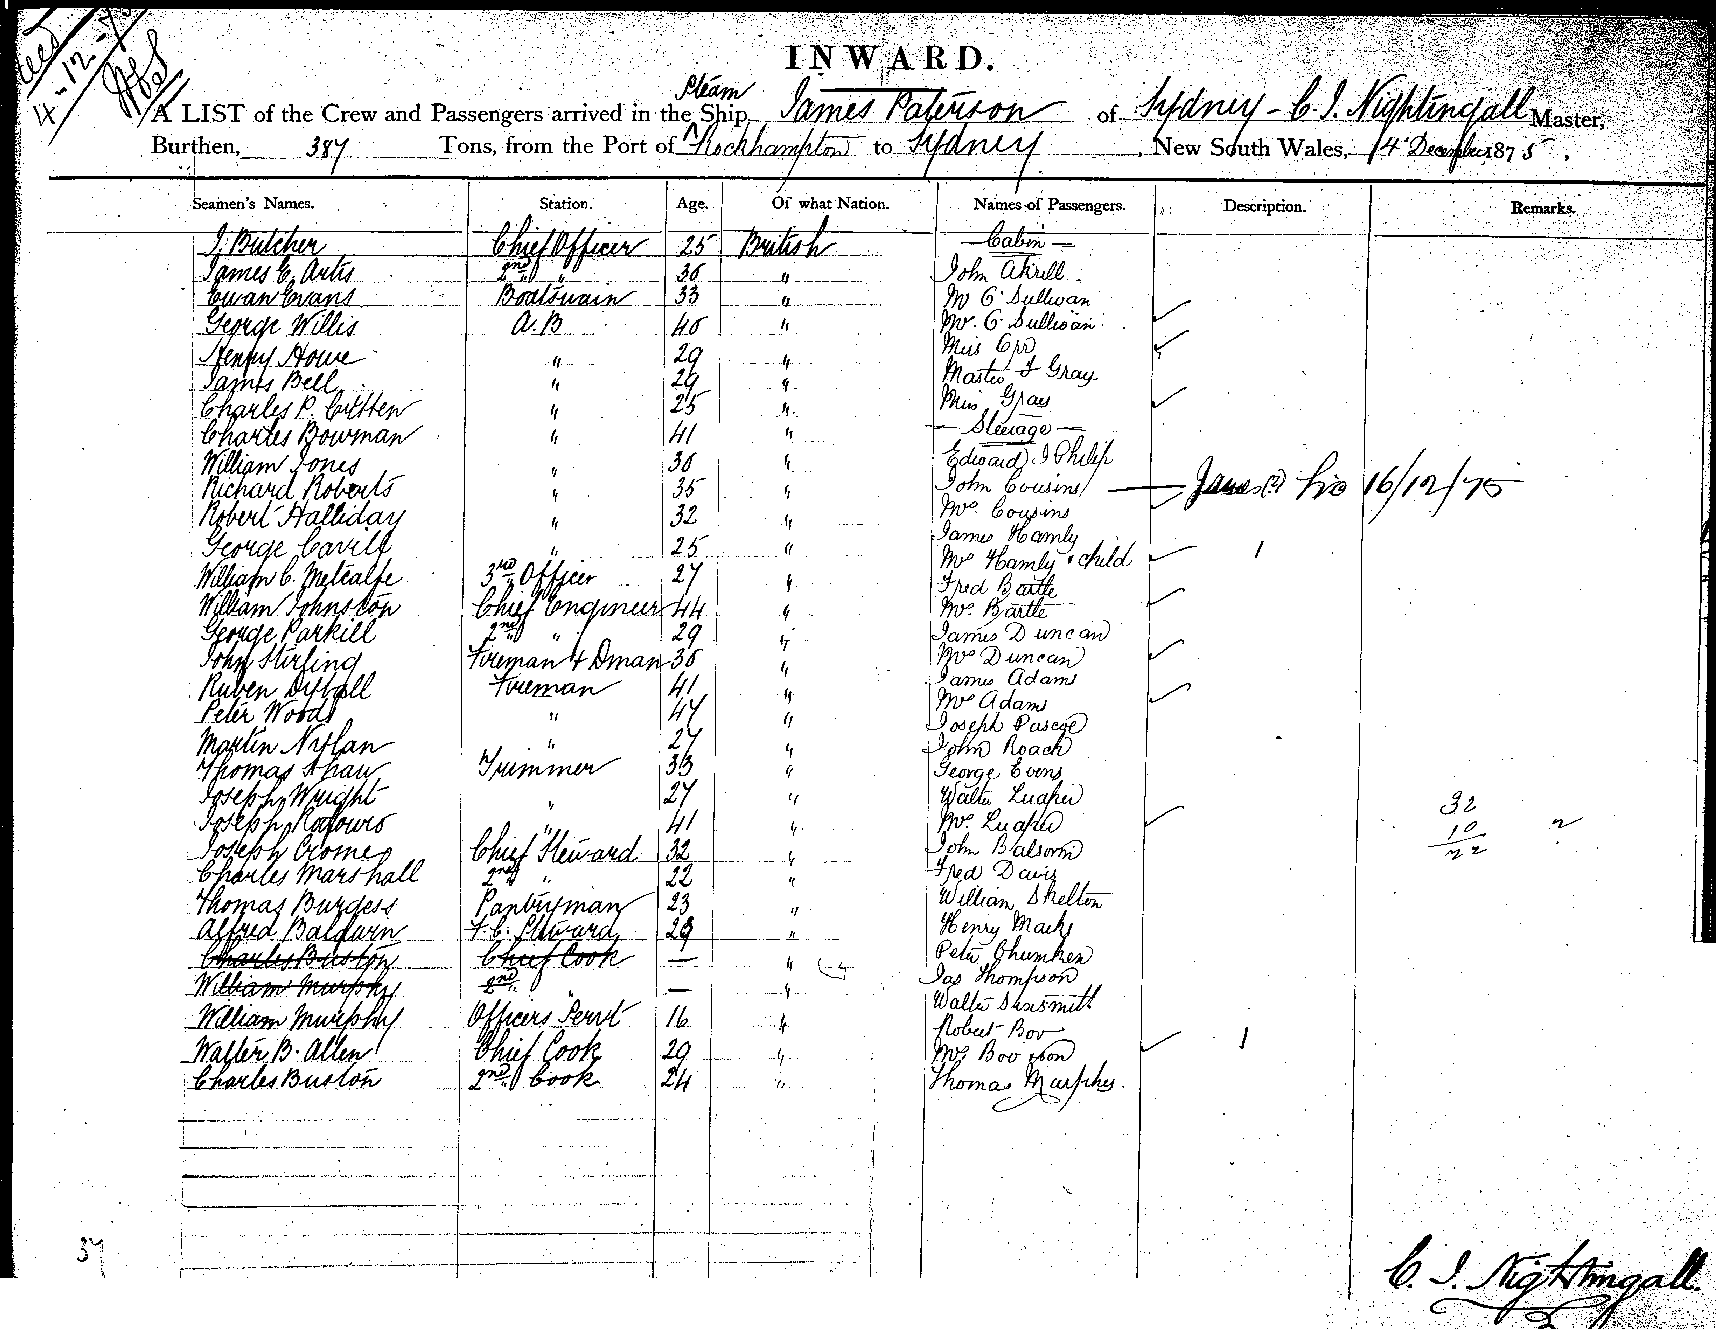 4-12-75
INWARD.
Steam
A LIST of the Crew and Passengers arrived in the Ship, James Paterson of Sydney - C I. Nightingall Master,
Burthen, 387 Tons, from the Port of Rockhampton to Sydney, New South Wales, 4 December 1875.
Seamen's Names. Station. Age. Of what Nation. Names of Passengers. Description. Remarks.
J. Butcher Chief Officer 25 British — Cabin —
James C. Artis 2nd " 36 " John Akrill
Evan Evans Boatswain 33 " Mr O'Sullivan
George Willis A.B 40 " Mrs. O'Sullivan
Henry Howe " 29 " Miss Orr
James Bell " 29 " Master F Gray
Charles P. " 25 " Miss Gray
Charles Bowman " 41 " — Steerage —
William Jones " 36 " Edward J Philip
Richard Roberts " 35 " John Cousins 16/12/75
Robert Halliday " 32 " Mrs Cousins
George Cavill " 25 " James Hamly
Mrs Hamly & child 1
William C. Metcalfe 3rd Officer 27 " Fred Bartle
William Johnston Chief Engineer 44 " Mrs. Bartle
George Parkill 2nd " 29 " James Duncan
John Stirling Fireman & Dman 36 " Mrs Duncan
Ruben Dyball Fireman 41 " James Adams
Mrs Adams
Peter Woods " 47 " Joseph Pascoe
Martin Nylan " 27 " John Roach
Thomas Shaw Trimmer 33 " George Evens
Joseph Wright " 27 " Walter 32
Joseph " 41 " Mrs. 10
Joseph Crome Chief Steward 32 " John 22
Charles Marshall 2nd " 22 " Fred Davis
Thomas Burgess Pantryman 23 " William Skelton
Alfred Baldwin F.C. Steward 29 " Henry Mack
Charles Buston Chief Cook — " Peter
William Murphy 2nd " — " Jas Thompson
Walter
William Murphy Officers Servt 16 " Robert Bov
Walter B. Allen Chief Cook 29 " Mrs Bov & son 1
Charles Buston 2nd Cook 24 " Thomas Murphy.
37
C. I. Nightingall